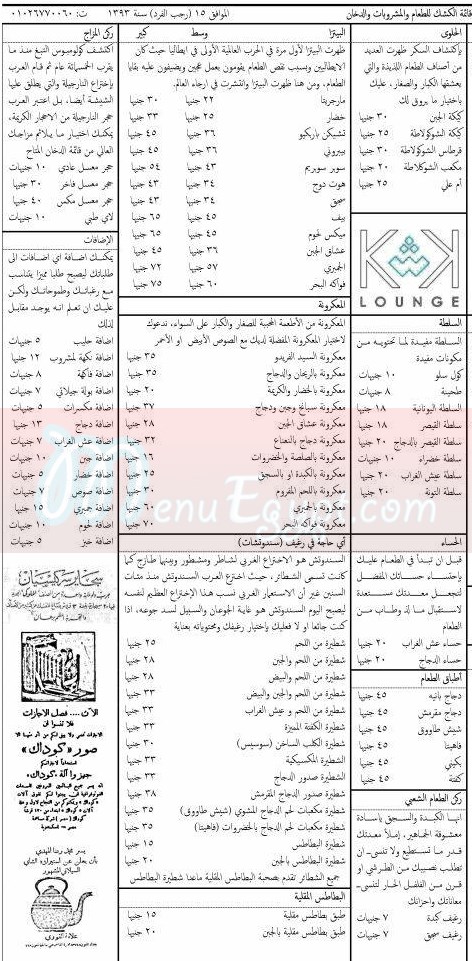 قائمة الكشك للطعام والمشروبات والدخان
الموافق ١٥ (رجب الفرد) سنة ١٣٩٣
ت: ٠١٠٢٦٧٧٠٠٦٠
الحلوى
بإكتشاف السكر ظهرت العديد
من أصناف الطعام اللذيذة والتي
يعشقها الكبار والصغار، عليك
بإختيار ما يروق لك
كيكة الجبن ٣٠ جنيها
كيكة الشوكولاطة ٢٥ جنيها
قرطاس الشوكولاطة ٣٠ جنيها
مكعب الشوكلاطة ٢٠ جنيها
أم علي ٢٥ جنيها
KK
LOUNGE
السلطة
السلطة مفيدة لما تحتويه من
مكونات مفيدة
كول سلو ١٠ جنيهات
طحينة ٨ جنيهات
السلطة اليونانية ١٨ جنيها
سلطة القيصر ١٨ جنيها
سلطة القيصر بالدجاج ٢٠ جنيها
سلطة خضراء ١٠ جنيهات
سلطة عيش الغراب ٢٠ جنيها
سلطة التونة ٢٠ جنيها
الحساء
قبل ان تبدأ في الطعام عليك
بإحتساء حسائك المفضل
لتجعل معدتك مستعدة
لاستقبال ما لذ وطاب من
الطعام
حساء عش الغراب ٢٠ جنيها
حساء الدجاج ٢٠ جنيها
أطباق الطعام
دجاج بانيه ٤٥ جنيها
دجاج مقرمش ٤٥ جنيها
شيش طاووق ٤٥ جنيها
فاهيتا ٤٥ جنيها
بكيني ٤٥ جنيها
كفتة ٤٥ جنيها
ركن الطعام الشعبي
انها الكبدة والسجق ياسادة
معشوقة الجماهير، إملأ معدتك
قدر ما تستطيع ولا تنسى ان
تطلب نصيبك من الطرشي او
قرن من الفلفل الحار لتنسى
معاناتك واحزانك
رغيف كبدة ٧ جنيهات
رغيف سجق ٧ جنيهات
البيتزا وسط كبير
ظهرت البيتزا لأول مرة في الحرب العالمية الأولى في ايطاليا حيث كان
الايطاليين وبسبب نقص الطعام يقومون بعمل عجين ويضيفون عليه بقايا
الطعام، ومن هنا ظهرت البيتزا وانتشرت في ارجاء العالم.
مارجريتا ٢٢ جنيها ٣٠ جنيها
خضار ٢٥ جنيها ٣٣ جنيها
تشيكن باربكيو ٣٦ جنيها ٤٥ جنيها
بيبروني ٣٦ جنيها ٤٥ جنيها
سوبر سوبريم ٤٣ جنيها ٥٤ جنيها
هوت دوج ٣٤ جنيها ٤٣ جنيها
سجق ٣٤ جنيها ٤٣ جنيها
بيف ٤٥ جنيها ٦٥ جنيها
ميكس لحوم ٤٥ جنيها ٦٥ جنيها
عشاق الجبن ٣٦ جنيها ٤٥ جنيها
الجمبري ٥٧ جنيها ٧٢ جنيها
فواكه البحر ٦٠ جنيها ٧٥ جنيها
المعكرونة
المعكرونة من الأطعمة المحببة للصغار والكبار على السواء، ندعوك
لاختيار المعكرونة المفضلة لديك مع الصوص الأبيض أو الأحمر
معكرونة السيد الفريدو ٣٥ جنيها
معكرونة بالريحان والدجاج ٣٥ جنيها
معكرونة بالخضار والكريمة ٢٠ جنيها
معكرونة سبانخ وجبن ودجاج ٣٧ جنيها
معكرونة عشاق الجبن ٢٨ جنيها
معكرونة دجاج بالنعناع ٣٢ جنيها
معكرونة بالصلصة والخضروات ١٦ جنيها
معكرونة بالكبدة او بالسجق ٢٥ جنيها
معكرونة باللحم المفروم
معكرونة بالجمبري
معكرونة فواكه البحر ٧٠ جنيها
أي حاجة في رغيف (سندوتشات)
السندوتش هو الاختراع الغربي لشاطر ومشطور وبينهما طازج كما
كانت تسمى الشطائر، حيث اخترع العرب السندوتش منذ مئات
السنين غير أن الاستعمار الغربي نسب هذا الإختراع العظيم لنفسه
ليصبح اليوم السندوتش هو غاية الجوعان والسبيل لسد جوعه، اذا
كنت جائعا او لا فعليك بإختيار رغيفك ومحتوياته بعناية
شطيرة من اللحم ٢٥ جنيها
شطيرة من اللحم والجبن ٢٨ جنيها
شطيرة من اللحم والبيض ٢٨ جنيها
شطيرة من اللحم والجبن والبيض ٣٣ جنيها
شطيرة من اللحم و عيش الغراب ٣٣ جنيها
شطيرة الكفتة المميزة ٣٣ جنيها
شطيرة الكلب الساخن (سوسيس) ٣٠ جنيها
الشطيرة المكسيكية ٣٣ جنيها
شطيرة صدور الدجاج ٣٣ جنيها
شطيرة صدور الدجاج المقرمش ٣٨ جنيها
شطيرة مكعبات لحم الدجاج المشوي (شيش طاووق) ٣٥ جنيها
شطيرة مكعبات لحم الدجاج بالخضروات (فاهيتا) ٣٥ جنيها
شطيرة البطاطس ١٥ جنيها
شطيرة البطاطس بالجبن ٢٠ جنيها
جميع الشطائر تقدم بصحبة البطاطس المقلية ماعدا شطيرة البطاطس
البطاطس المقلية
طبق بطاطس مقلية ١٥ جنيها
طبق بطاطس مقلية بالجبن ٢٠ جنيها
ركن المزاج
اكتشف كولومبوس التبغ منذ ما
يقرب الخمسمائة عام ثم قام العرب
بإختراع النارجيلة والتي يطلق عليها
الشيشة أيضا، بل اعتبر العرب
حجر النارجيلة من الاحجار الكريمة،
يمكنك اختيار ما يلائم مزاجك
العالي من قائمة الدخان المتاح
حجر معسل عادي ١٠ جنيهات
حجر معسل فاخر ٣٠ جنيها
حجر معسل مكس ٤٠ جنيها
لاي طبي ١٠ جنيهات
الإضافات
يمكنك اضافة اي اضافات الى
طلباتك ليصبح طلبا مميزا يتناسب
مع رغباتك وطموحاتك ولكن
عليك ان تعلم انه يوجد مقابل
لذلك
اضافة حليب ٥ جنيهات
اضافة نكهة لمشروب ١٢ جنيها
اضافة فاكهة ٨ جنيهات
اضافة بولة جيلاتي ٧ جنيهات
اضافة مكسرات ٥ جنيهات
اضافة دجاج ١٣ جنيها
اضافة عش الغراب ٧ جنيهات
اضافة جبن ١٠ جنيهات
اضافة خضار ٥ جنيهات
اضافة صوص ٧ جنيهات
اضافة جمبري ١٥ جنيها
اضافة لحوم ١٠ جنيهات
اضافة خبز ٥ جنيهات
سجاير سركسيان
الآن .... فصل الاجازات
فلا تنسوا ان
صور «كوداك»
جيز وآلة «كوداك»
Menu Egypt.com